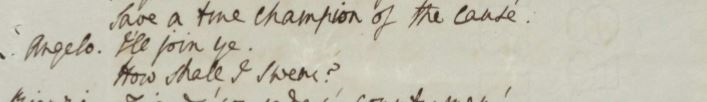 Save a true champion of the cause.
Angelo. I'll join ye.
How shall I swear?